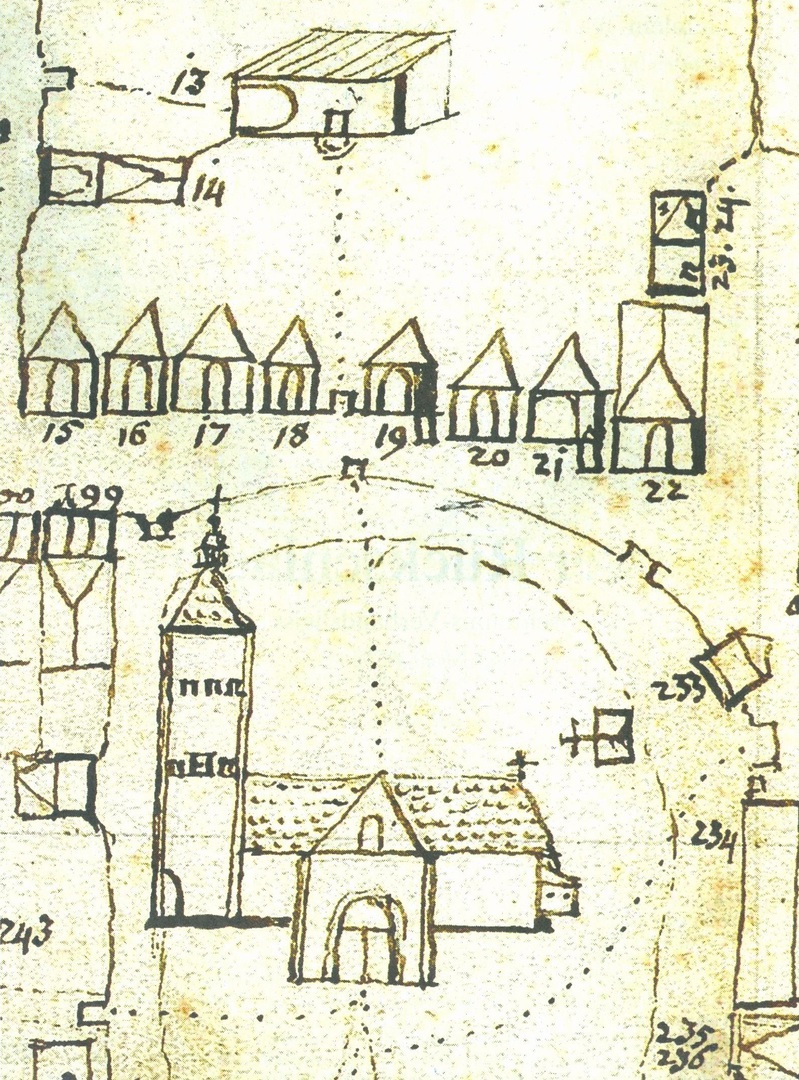 13
14
24.
23.
15 16 17 18 19 20 21 22
199
233
234
243
235
236